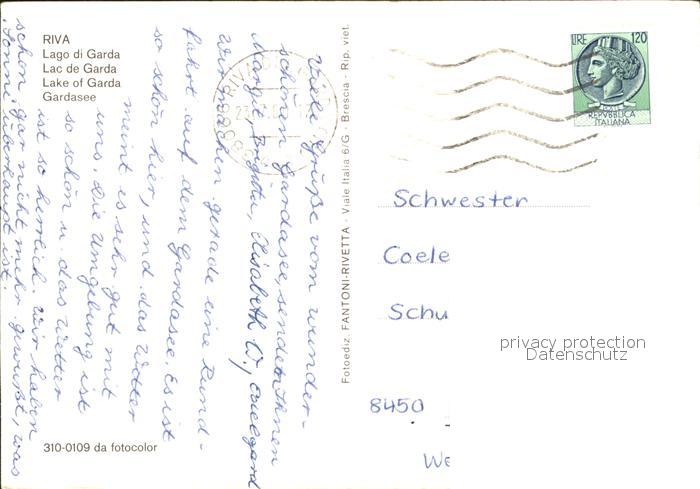 RIVA
Lago di Garda
Lac de Garda
Lake of Garda
Gardasee
Viele Grüße vom wunder-
schönen Gardasee, senden Ihnen
Margit, Elisabeth W.,
Wir machen gerade eine Rund-
fahrt auf dem Gardasee. Es ist
so schön hier, und das Wetter
meint es sehr gut mit
uns. Die Umgebung ist
so schön u. das Wetter
ist so herrlich. Wir haben
schon gar nicht mehr gewußt, was
Sonne überhaupt ist.
310-0109 da fotocolor
Fotoediz. FANTONI-RIVETTA - Viale Italia 6/G - Brescia - Rip. viet.
RIVA
LIRE 120
REPVBBLICA
ITALIANA
Schwester
Coele
Schu
privacy protection
Datenschutz
8450
We